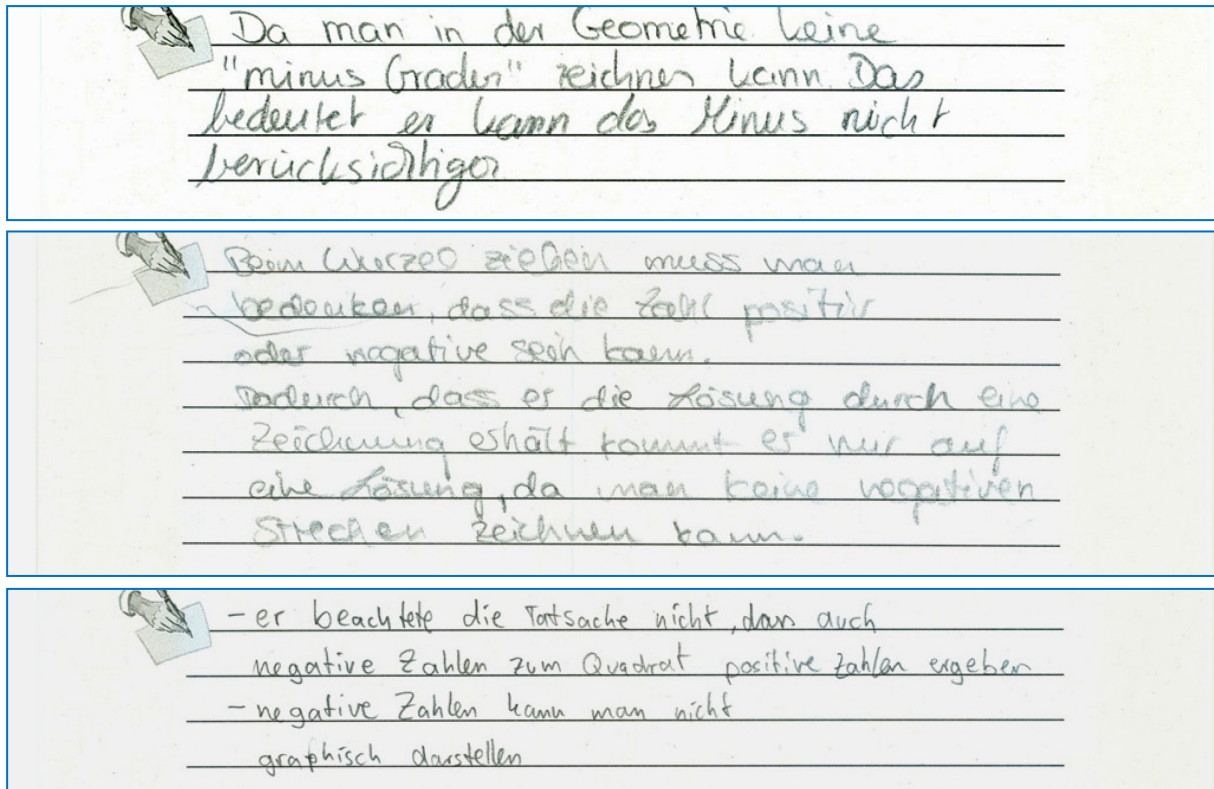 Da man in der Geometrie keine
"minus Graden" zeichnen kann. Das
bedeutet er kann das Minus nicht
berücksichtigen
Beim Wurzel ziehen muss man
bedenken, dass die Zahl positiv
oder negative sein kann.
Dadurch, dass er die Lösung durch eine
Zeichnung erhält kommt er nur auf
eine Lösung, da man keine negativen
Strecken zeichnen kann.
- er beachtete die Tatsache nicht, dass auch
negative Zahlen zum Quadrat positive Zahlen ergeben
- negative Zahlen kann man nicht
graphisch darstellen